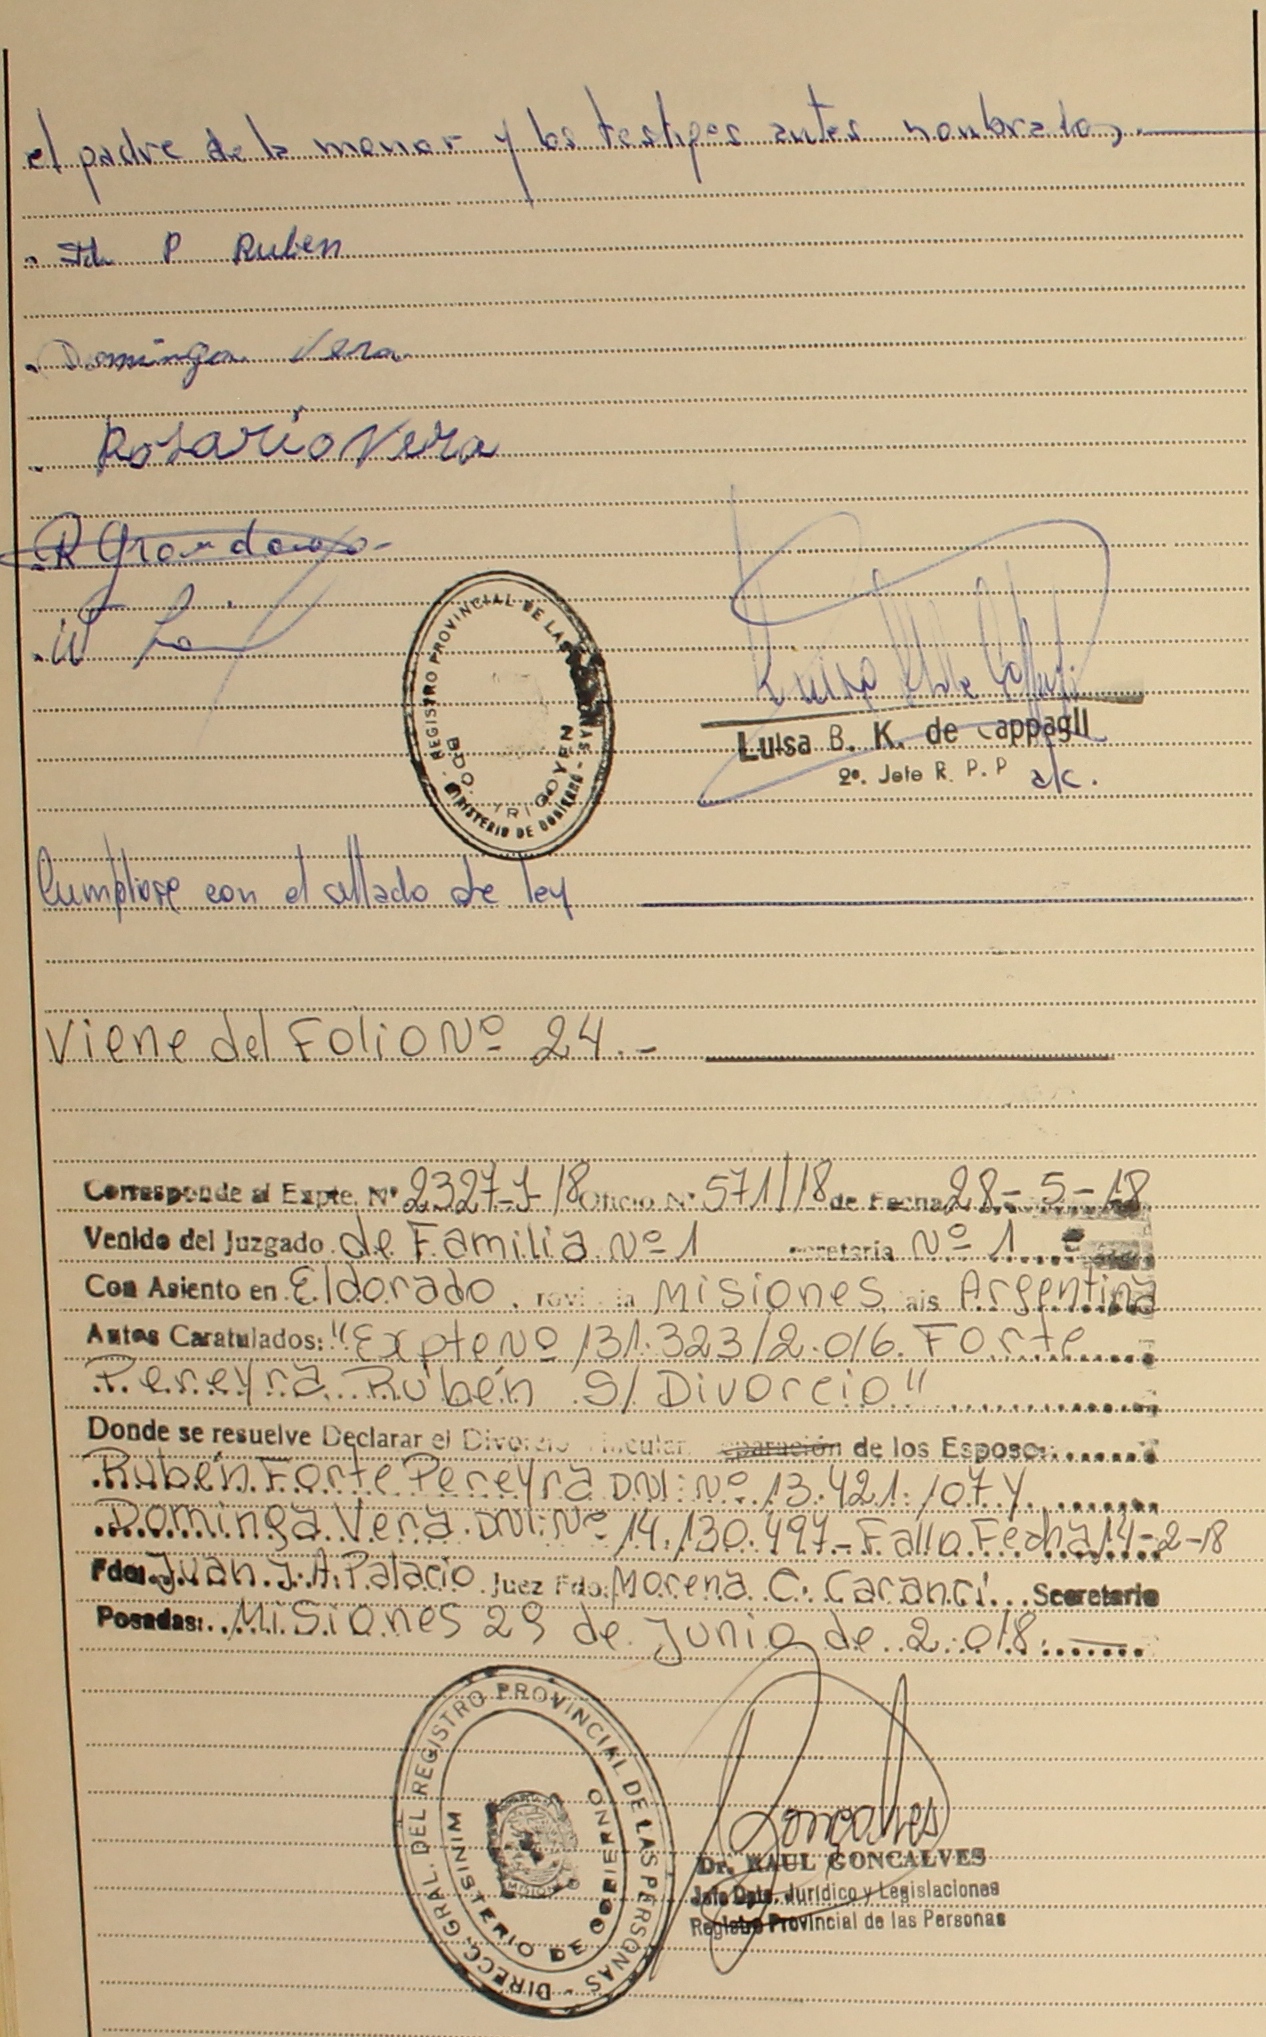 el padre de la menor y los testigos antes nombrados.
P Ruben
Dominga Vera
Rosario Vera
REGISTRO PROVINCIAL DE LAS PERSONAS - MINISTERIO DE GOBIERNO
BDO. IRIGOYEN
Luisa B. K. de Cappagli
2º. Jefe R. P. P a/c.
Cumpliose con el sellado de ley
Viene del Folio Nº 24.-
Corresponde al Expte. Nº 2327-J-18 Oficio Nº 571/18 de Fecha 28-5-18
Venido del Juzgado de Familia Nº 1 ecretaria Nº 1
Con Asiento en Eldorado, rovi ia Misiones, ais Argentina
Autos Caratulados: "Expte Nº 131.323/2.016. Forte
Pereyra Rubén S/ Divorcio"
Donde se resuelve Declarar el Divorcio vincular eparación de los Esposos:
Rubén Forte Pereyra DNI: Nº 13.421.107 Y
Dominga Vera. DNI: Nº 14.130.497 - Fallo Fecha 14-2-18
Fdo: Juan J. A. Palacio Juez Fdo: Morena C. Caranci Secretario
Posadas: Misiones 29 de Junio de 2.018.
DIRECC. GRAL. DEL REGISTRO PROVINCIAL DE LAS PERSONAS -
MINISTERIO DE GOBIERNO
MISIONES
Goncalves
Dr. RAUL GONCALVES
Jefe Dpto. Jurídico y Legislaciones
Registro Provincial de las Personas